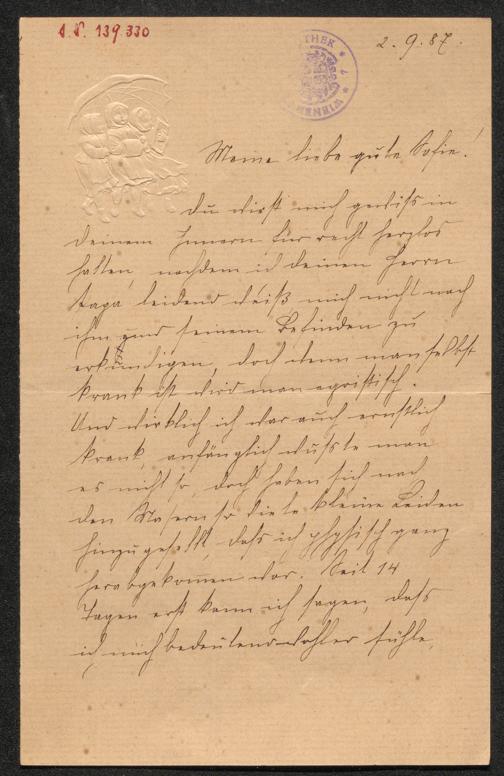 I.N. 139.330
2.9.87.
Meine liebe gute Sofie!
Du wirst mich gewiß in
deinem Innern für recht herzlos
halten, nachdem ich deinen Herrn
Papa leidend weiß mich nicht nach
ihm und seinem Befinden zu
erkundigen, doch wenn man selbst
krank ist wird man egoistisch.
Und wirklich ich war auch ernstlich
krank anfänglich wußte man
es nicht so, doch haben sich nach
den Masern so viele kleine Leiden
hinzugesellt dass ich physisch ganz
herabgekommen war. Seit 14
Tagen erst kann ich sagen, dass
ich mich bedeutend wohler fühle,